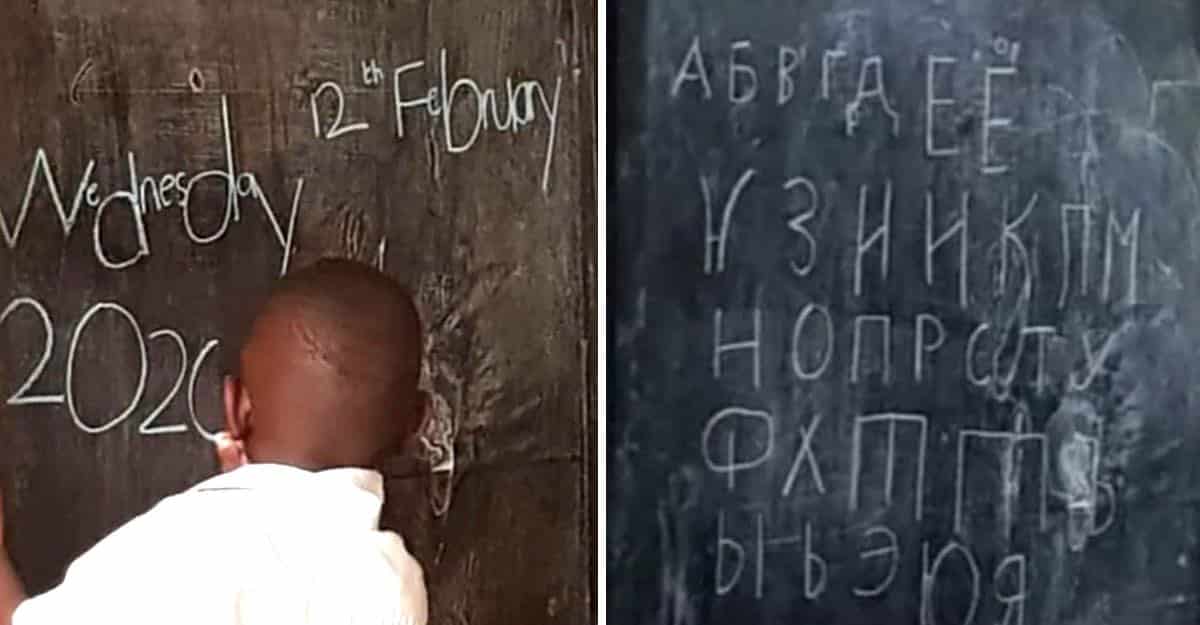 12th February
Wednesday
2020
А Б В Г Д Е Ё
И З И И К П М
Н О П Р С Т У
Ф Х П П Ъ
Ы Ь Э Ю Я